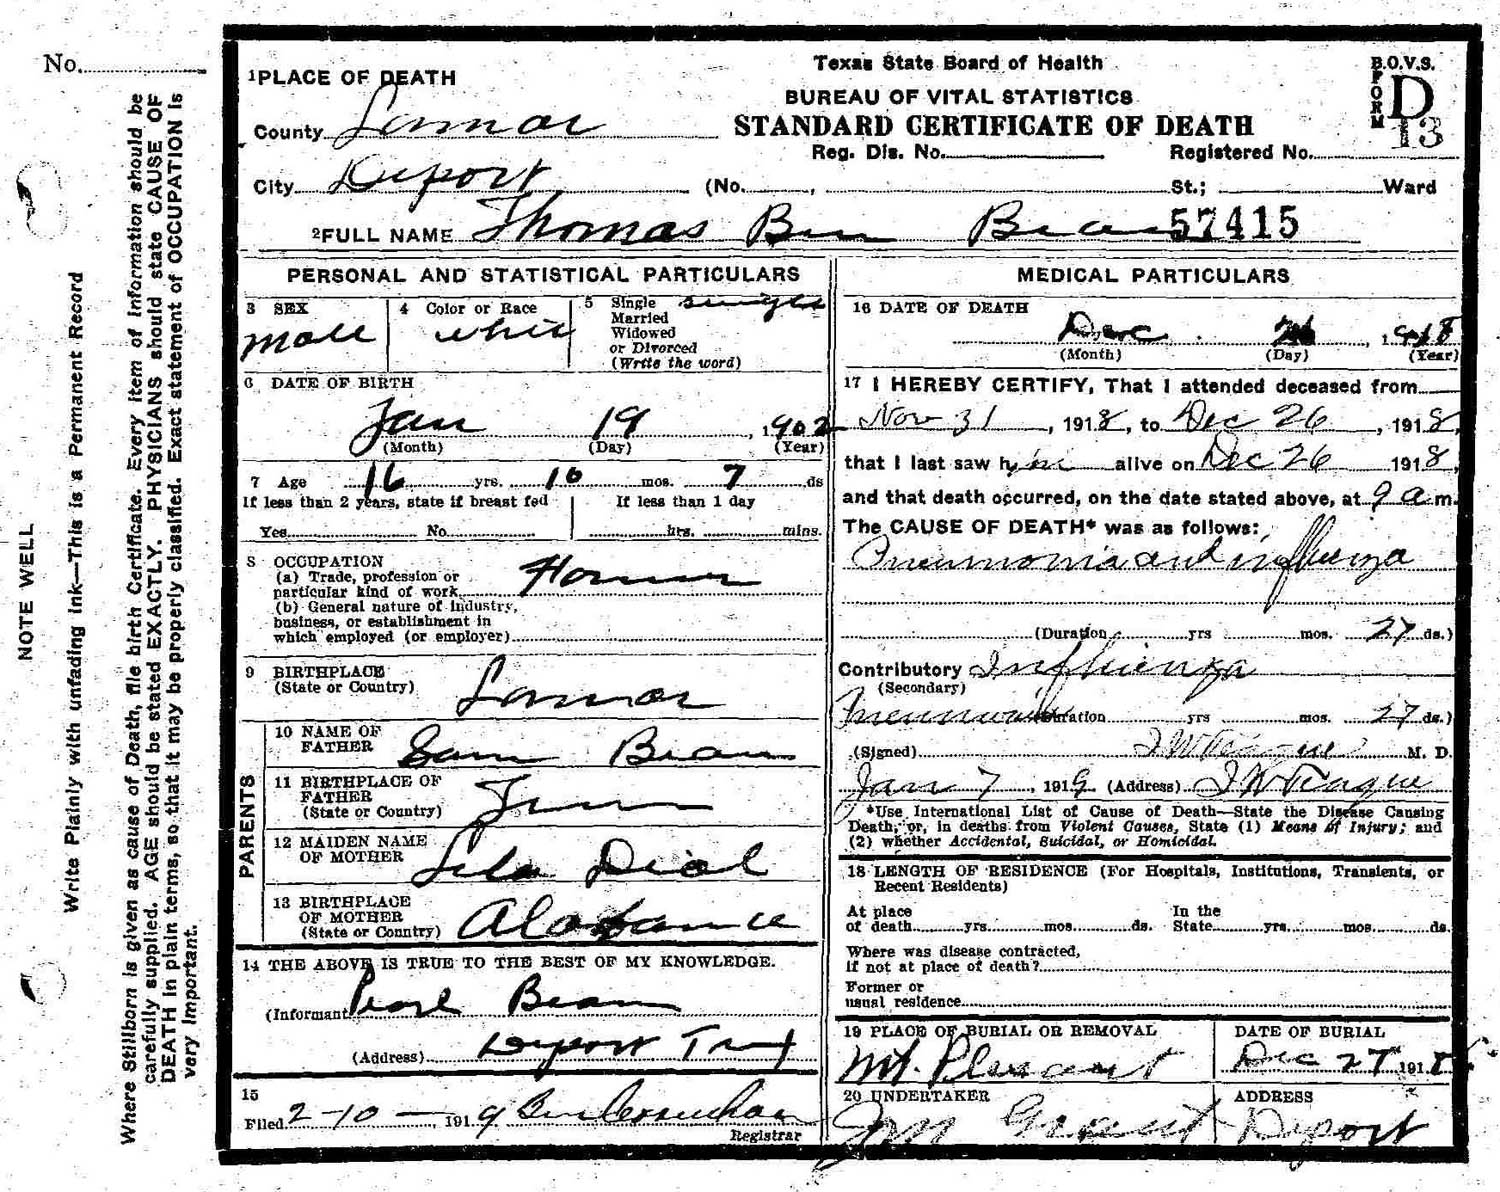 No.
Texas State Board of Health
BUREAU OF VITAL STATISTICS
STANDARD CERTIFICATE OF DEATH
B.O.V.S.
FORM
D
13
1 PLACE OF DEATH
County Lamar
Reg. Dis. No. Registered No.
City Deport (No. , St.; Ward
2 FULL NAME Thomas Ben Bean 57415
PERSONAL AND STATISTICAL PARTICULARS
3 SEX
Male
4 Color or Race
White
5 Single
Married
Widowed
or Divorced
(Write the word)
Single
6 DATE OF BIRTH
Jan 19, 1902
(Month) (Day) (Year)
7 Age 16 yrs. 10 mos. 7 ds
If less than 2 years, state if breast fed
Yes No.
If less than 1 day
hrs. mins.
8 OCCUPATION
(a) Trade, profession or
particular kind of work
(b) General nature of industry,
business, or establishment in
which employed (or employer)
9 BIRTHPLACE
(State or Country) Lamar
PARENTS
10 NAME OF
FATHER Sam Bean
11 BIRTHPLACE OF
FATHER
(State or Country)
12 MAIDEN NAME
OF MOTHER Lula Dial
13 BIRTHPLACE
OF MOTHER
(State or Country)
14 THE ABOVE IS TRUE TO THE BEST OF MY KNOWLEDGE.
(Informant Pearl Bean
(Address) Deport
15
Filed 2-10- 1919
Registrar
MEDICAL PARTICULARS
16 DATE OF DEATH
Dec 26, 1918
(Month) (Day) (Year)
17 I HEREBY CERTIFY, That I attended deceased from
Nov 31, 1918, to Dec 26, 1918,
that I last saw him alive on Dec 26 1918,
and that death occurred, on the date stated above, at 9 a.m.
The CAUSE OF DEATH* was as follows:
Pneumonia and influenza
(Duration yrs mos. 27 ds.)
Contributory Influenza
(Secondary)
Pneumonia (Duration yrs mos. 27 ds.)
(Signed) J W Teague M. D.
Jan 7, 1919 (Address) J W Teague
*Use International List of Cause of Death—State the Disease Causing
Death, or, in deaths from Violent Causes, State (1) Means of Injury; and
(2) whether Accidental, Suicidal, or Homicidal.
18 LENGTH OF RESIDENCE (For Hospitals, Institutions, Transients, or
Recent Residents)
At place
of death yrs. mos. ds.
In the
State yrs. mos. ds.
Where was disease contracted,
if not at place of death?
Former or
usual residence
19 PLACE OF BURIAL OR REMOVAL
Mt. Pleasant
DATE OF BURIAL
Dec 27 1918
20 UNDERTAKER
Grant
ADDRESS
Deport
NOTE WELL
Write Plainly with unfading ink—This is a Permanent Record
Where Stillborn is given as cause of Death, file birth Certificate. Every item of information should be
carefully supplied. AGE should be stated EXACTLY. PHYSICIANS should state CAUSE OF
DEATH in plain terms, so that it may be properly classified. Exact statement of OCCUPATION is
very important.